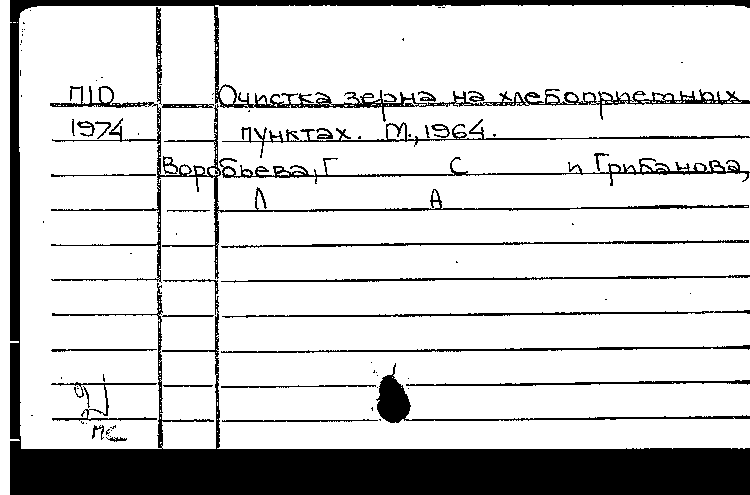 П10 Очистка зерна на хлебоприемных
1974 пунктах. М., 1964.
Воробьева, Г С и Грибанова,
Л А
МС